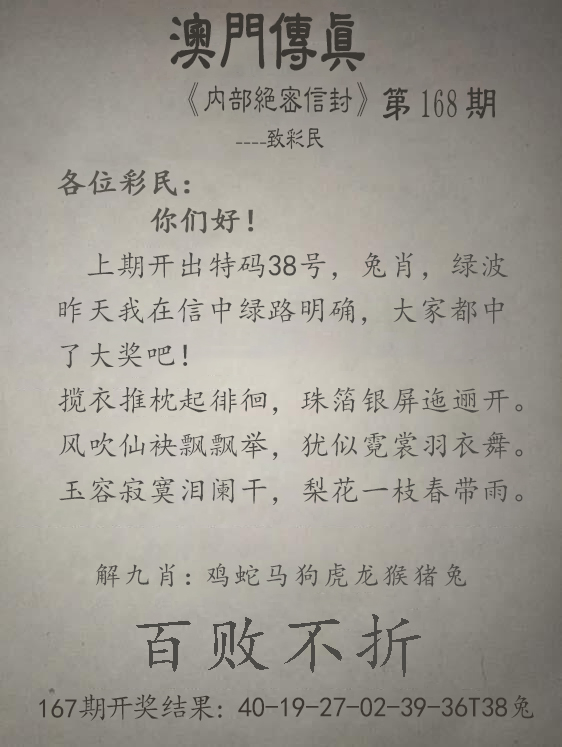 澳門傳眞
《内部絕密信封》第168期
----致彩民
各位彩民：
你们好！
上期开出特码38号，兔肖，绿波
昨天我在信中绿路明确，大家都中
了大奖吧！
揽衣推枕起徘徊，珠箔银屏迤逦开。
风吹仙袂飘飘举，犹似霓裳羽衣舞。
玉容寂寞泪阑干，梨花一枝春带雨。
解九肖：鸡蛇马狗虎龙猴猪兔
百败不折
167期开奖结果：40-19-27-02-39-36T38兔